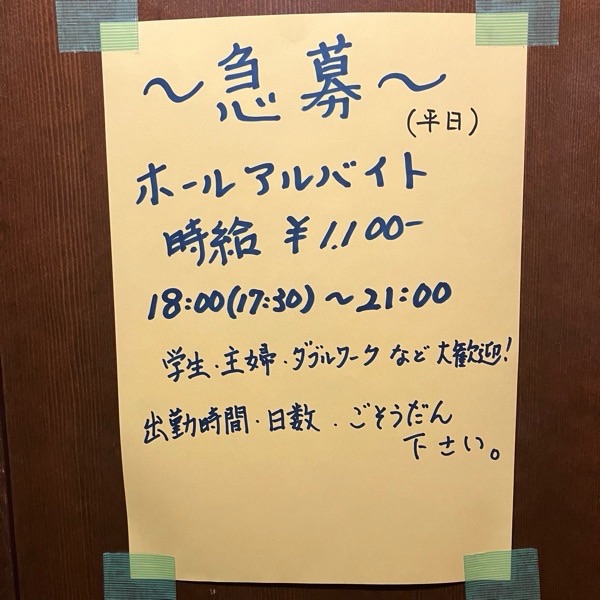 ～急募～
(平日)
ホールアルバイト
時給 ¥1,100-
18:00(17:30)～21:00
学生・主婦・ダブルワークなど大歓迎!
出勤時間・日数・ごそうだん
下さい。